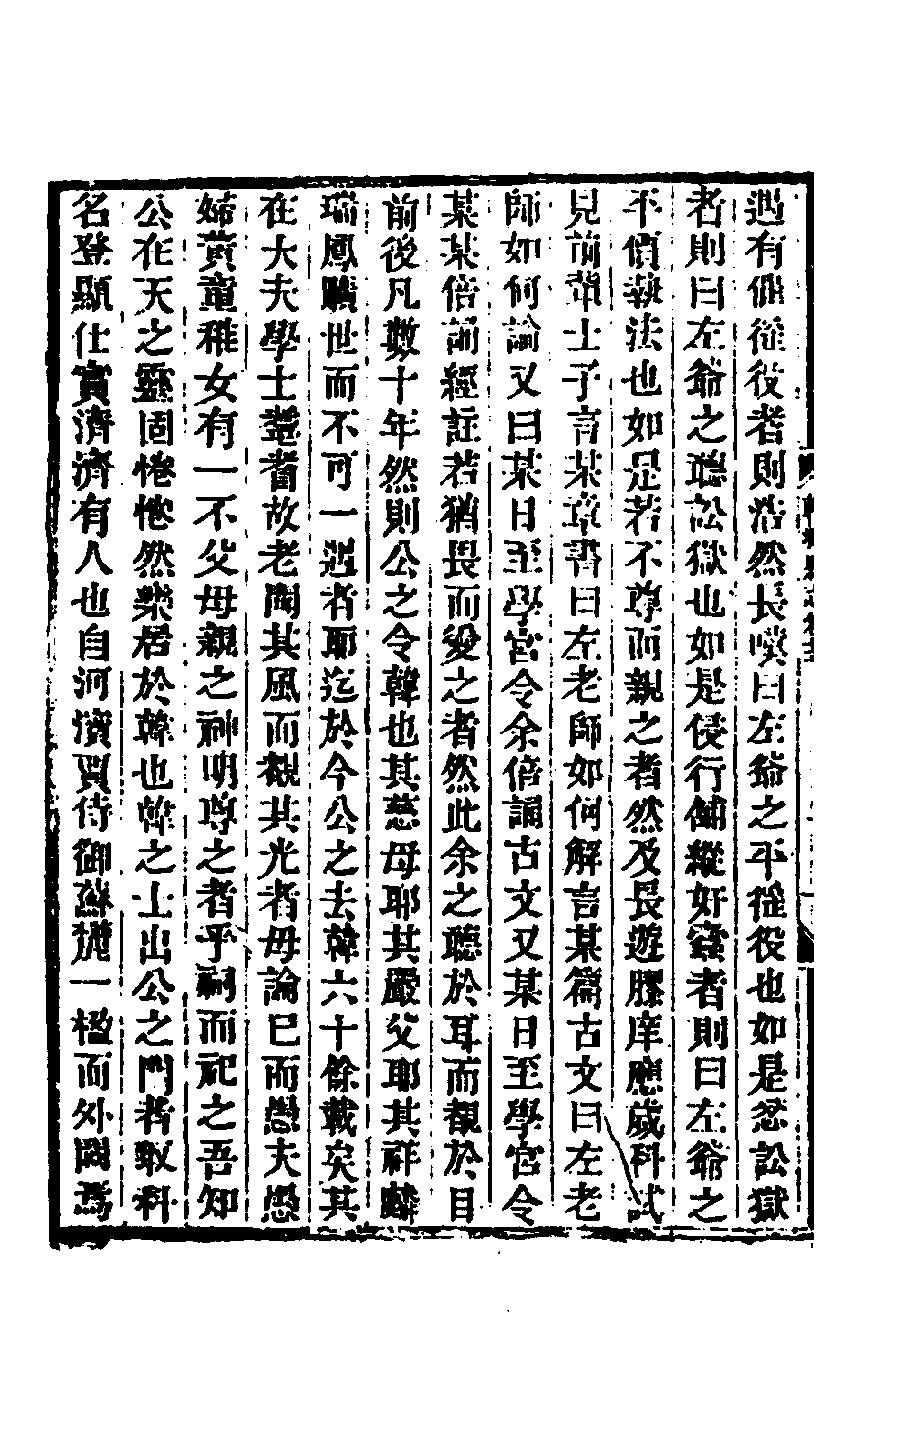 遇有催徭役者則浩然長嘆曰左爺之平徭役也如是忿訟獄
者則曰左爺之聽訟獄也如是侵行舖縱奸蠹者則曰左爺之
平價執法也如是若不尊而親之者然及長遊膠庠應歲科試
見前輩士子言某章書曰左老師如何解言某篇古文曰左老
師如何論又曰某日至學宮令余倍誦古文又某日至學宮令
某某倍誦經註若猶畏而愛之者然此余之聽於耳而覩於目
前後凡數十年然則公之令韓也其慈母耶其嚴父耶其祥麟
瑞鳳曠世而不可一遇者耶迄於今公之去韓六十餘載矣其
在大夫學士耄耆故老陶其風而觀其光者毋論已而愚夫愚
婦黃童稚女有一不父母親之神明尊之者乎嗣而祀之吾知
公在天之靈固惓惓然樂居於韓也韓之士出公之門者取科
名登顯仕實濟濟有人也自河濱買侍御蘇㲄一檻而外闕焉